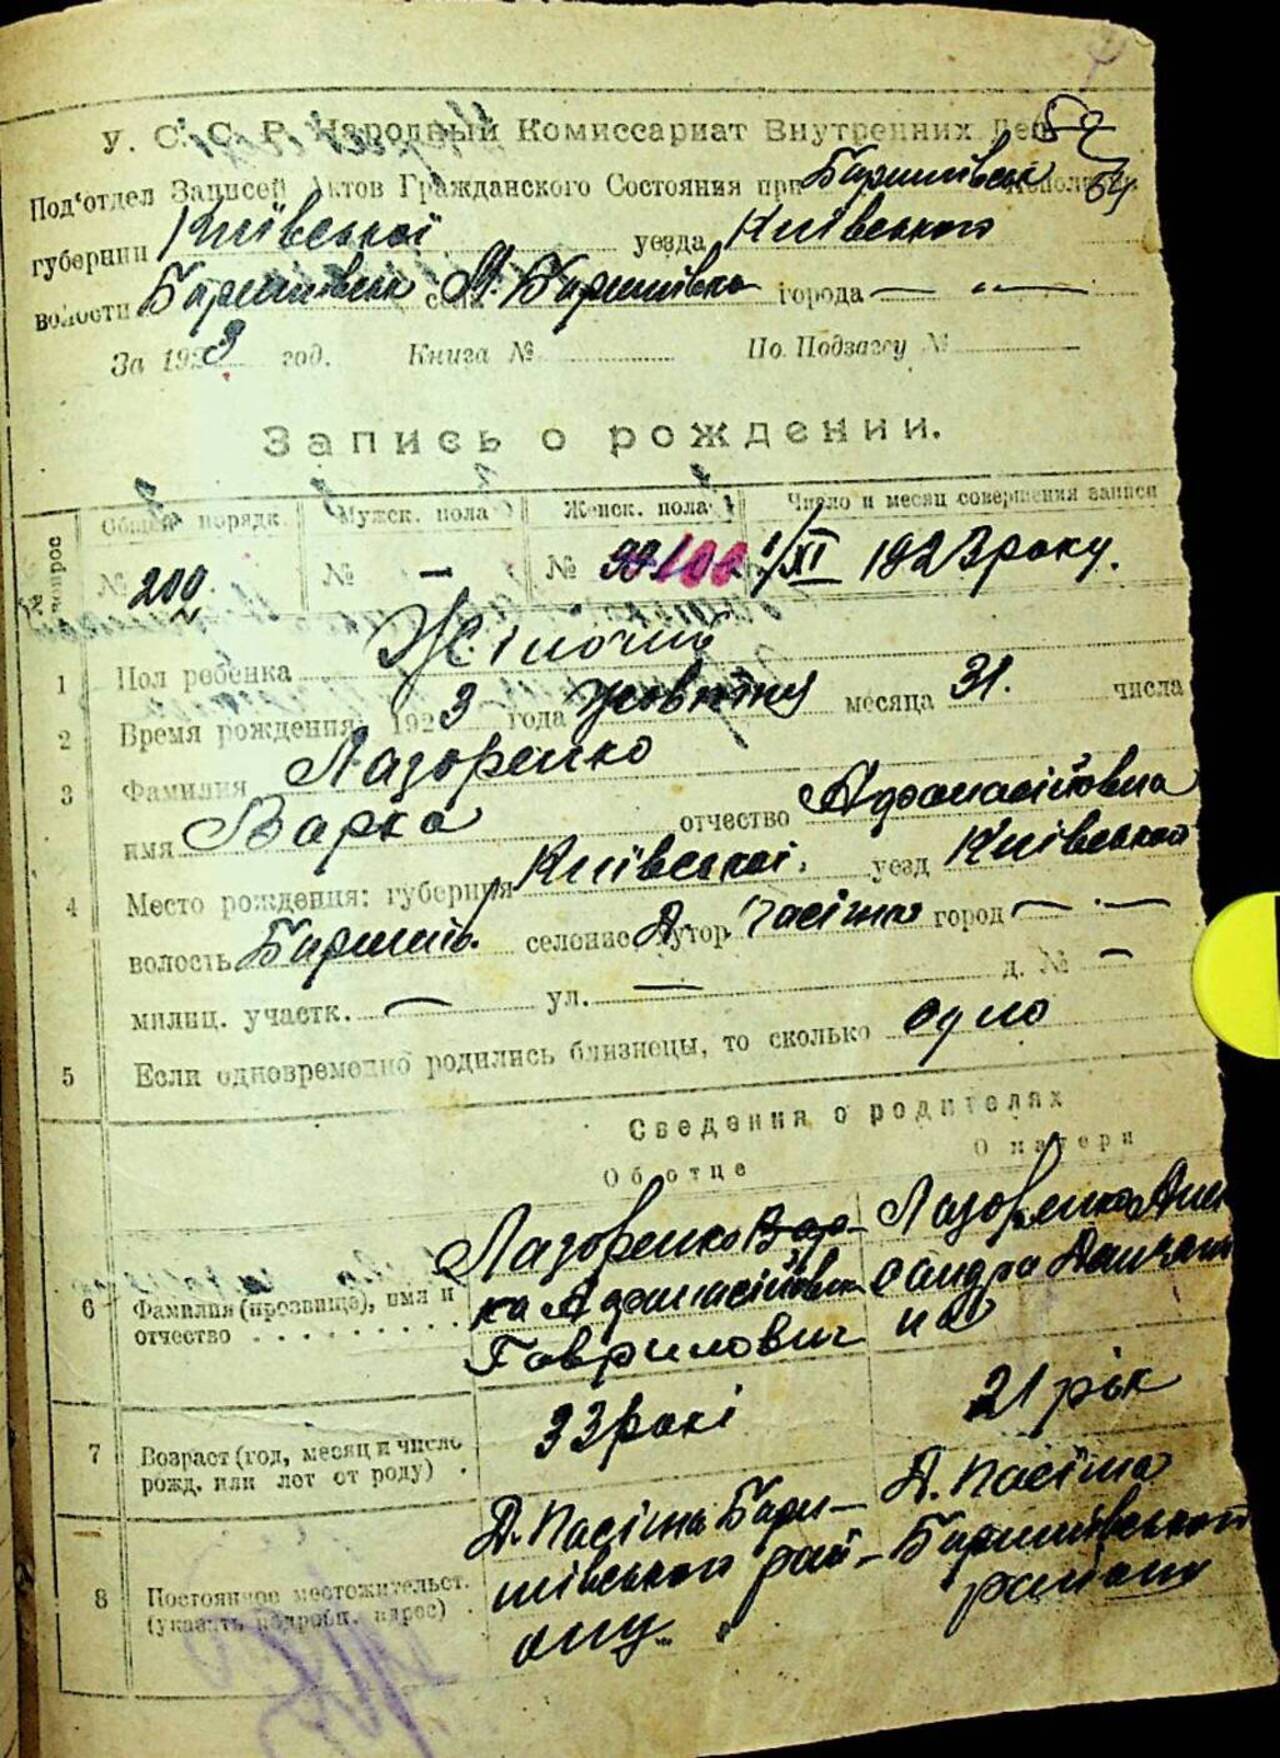 У. С. С. Р. Народный Комиссариат Внутренних Дел
Под'отдел Записей Актов Гражданского Состояния при Баришівськ
губернии Київської уезда Київського
волости Баришівськ села М. Баришівка города — „ —
За 1923 год. Книга № По Подзагсу №
Запись о рождении.
№ вопрос Общий порядк. Мужск. пола Женск. пола Число и месяц совершения записи
№ 200. № — № 99 100 1/XI 1923 року.
1 Пол ребенка Жіночий
2 Время рождения: 1923 года жовтня месяца 31. числа
3 Фамилия Лазоренко
имя Варка отчество Афанасіївна
4 Место рождения: губерния Київської. уезд Київської
волость Баришів. селение, хутор город — . —
милиц. участк. — ул. — д. № —
5 Если одновременно родились близнецы, то сколько одно
Сведения о родителях
Об отце О матери
6 Фамилия (прозвище), имя и отчество . . . . . . . . .
Лазоренко Вар-
ка Афанасійович
Гаврилович
Лазоренко
сандра
7 Возраст (год, месяц и число рожд. или лет от роду) . 33 рокі 21 рік
8 Постоянное местожительст. (указать подробн. адрес) .
Д. Пасішна Бари-
шівського рай-
ону
Д. Пасішна
Баришівського
району